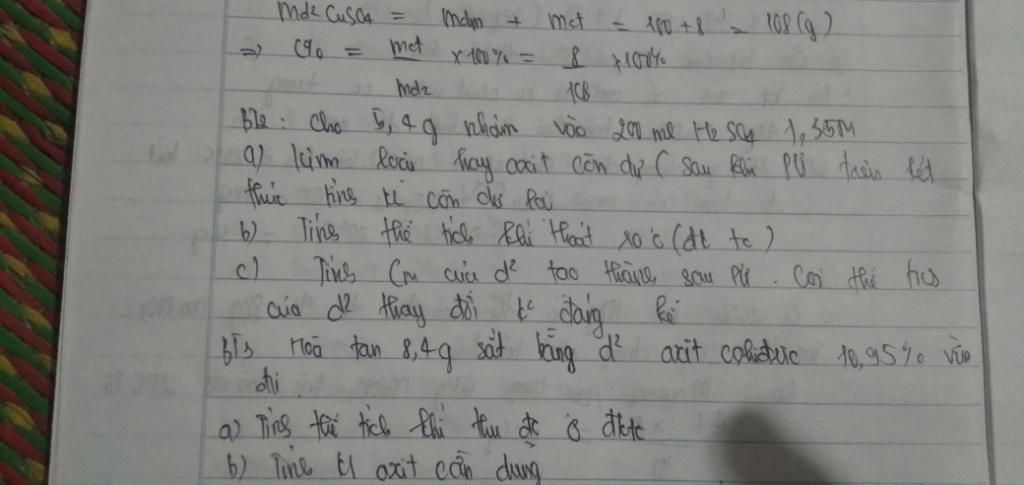 mdd CuSO4 = mdm + mct = 100 + 8 = 108(g)
=> C% = mct x 100% = 8 x100%
mdd 108
BT2: Cho 5,4g nhôm vào 200 ml H2SO4 1,35M
a) Kim loại hay axit còn dư ( sau khi PƯ trên kết
thúc tính kl còn dư lại
b) Tính thể tích khí thoát (đk tc)
c) Tính CM của d² tạo thành sau PƯ. Coi thể tích
của d² thay đổi k° đáng kể
BT3 Hoà tan 8,4g sắt bằng d² axit clohidric 10,95% vừa
đủ
a) Tính thể tích khí thu đc ở đktc
b) Tính kl axit cần dùng